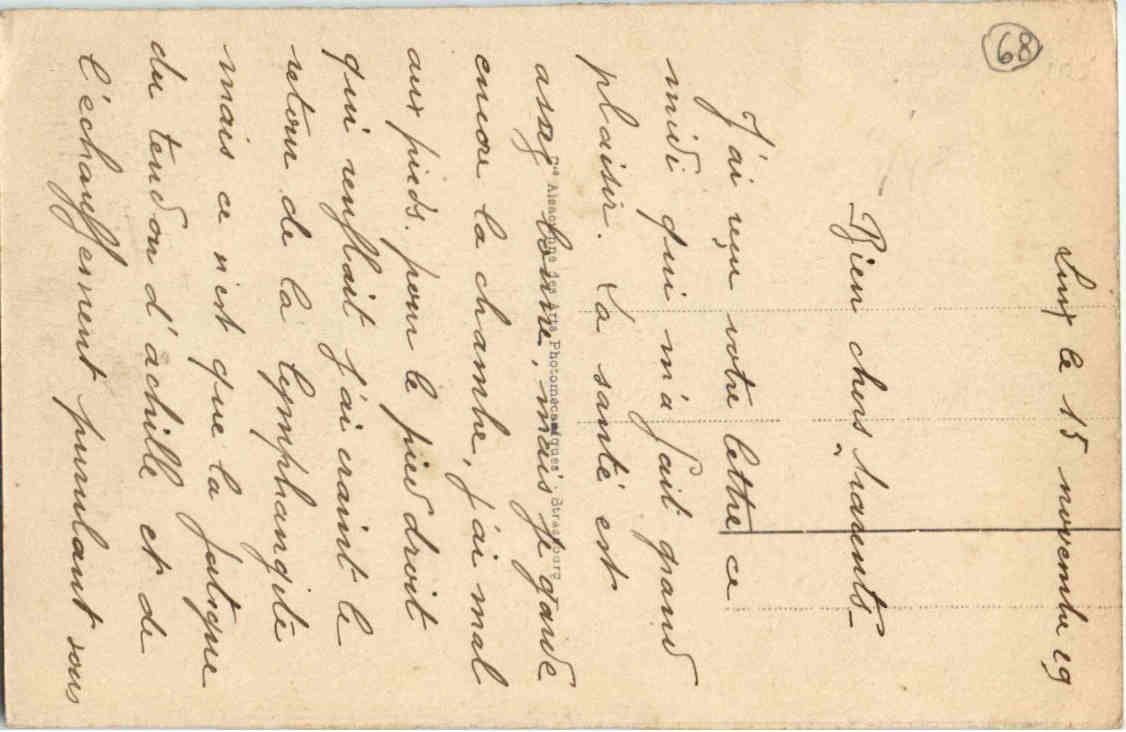 68
le 15 novembre 19
Bien chers parents -
J'ai reçu votre lettre ce
midi qui m'a fait grand
plaisir. La santé est
assez bonne, mais je garde
encore la chambre, j'ai mal
aux pieds. pour le pied droit
qui renflait j'ai craint le
retour de la lymphangite
mais ce n'est que la fatigue
du tendon d'achille et de
l'échauffement purulant sous
Cie Alsacienne des Arts Photomécaniques, Strasbourg